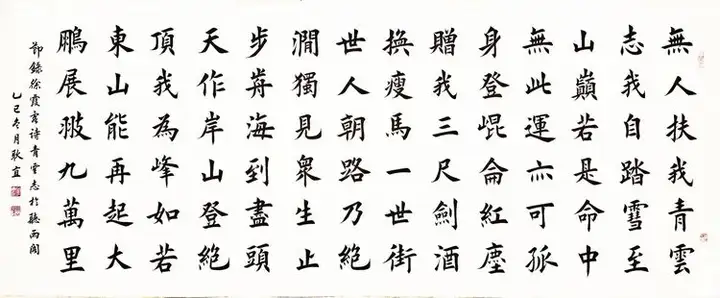 無人扶我青雲
志我自踏雪至
山巔若是命中
無此運亦可孤
身登崐侖紅塵
贈我三尺劍酒
換瘦馬一世街
世人朝路乃絕
澗獨見衆生止
步莽海到盡頭
天作岸山登絕
頂我為峰如若
東山能再起大
鵬展翅九萬里
節錄徐霞客诗青雲志於聽雨閣
乙巳冬月耿宜